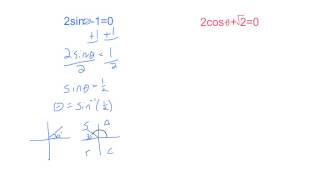 2sinθ-1=0
+1 +1
2sinθ/2 = 1/2
sinθ = 1/2
θ = sin⁻¹(1/2)
S A
T C
2cosθ+√2=0